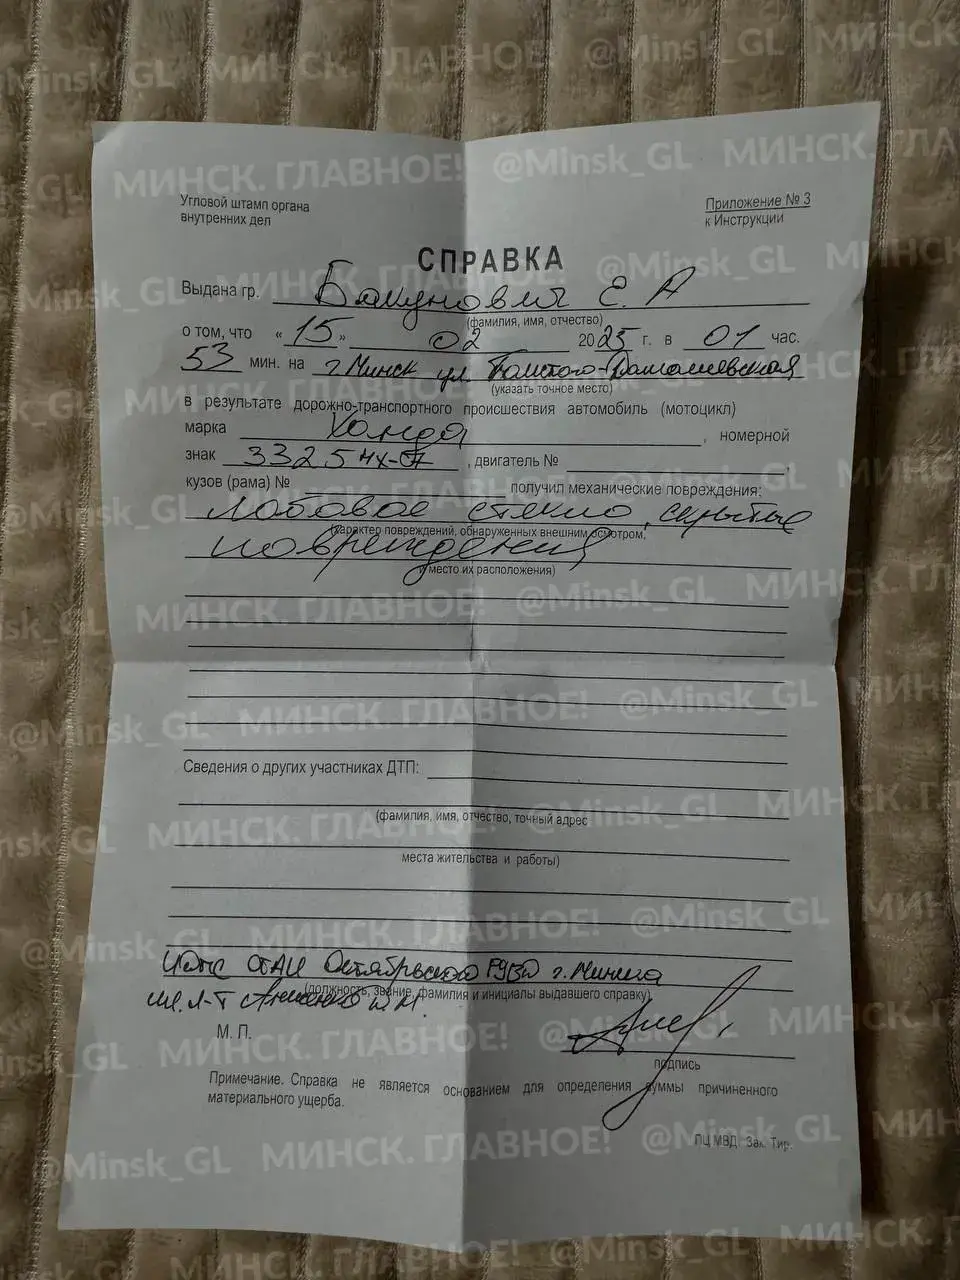 Угловой штамп органа
внутренних дел
Приложение № 3
к Инструкции
СПРАВКА
Выдана гр. Бакунович Е. А
(фамилия, имя, отчество)
о том, что «15» 02 2025 г. в 01 час.
53 мин. на г. Минск ул.
(указать точное место)
в результате дорожно-транспортного происшествия автомобиль (мотоцикл)
марка Хонда, номерной
знак 3325, двигатель №
кузов (рама) № получил механические повреждения:
лобовое стекло, скрытые
(характер повреждений, обнаруженных внешним осмотром,
повреждения
и место их расположения)
Сведения о других участниках ДТП:
(фамилия, имя, отчество, точный адрес
места жительства и работы)
ОГАИ Октябрьского РУВД г. Минска
(должность, звание, фамилия и инициалы выдавшего справку)
М. П.
подпись
Примечание. Справка не является основанием для определения суммы причиненного
материального ущерба.
ПЦ МВД Зак. Тир.
МИНСК. ГЛАВНОЕ! @Minsk_GL